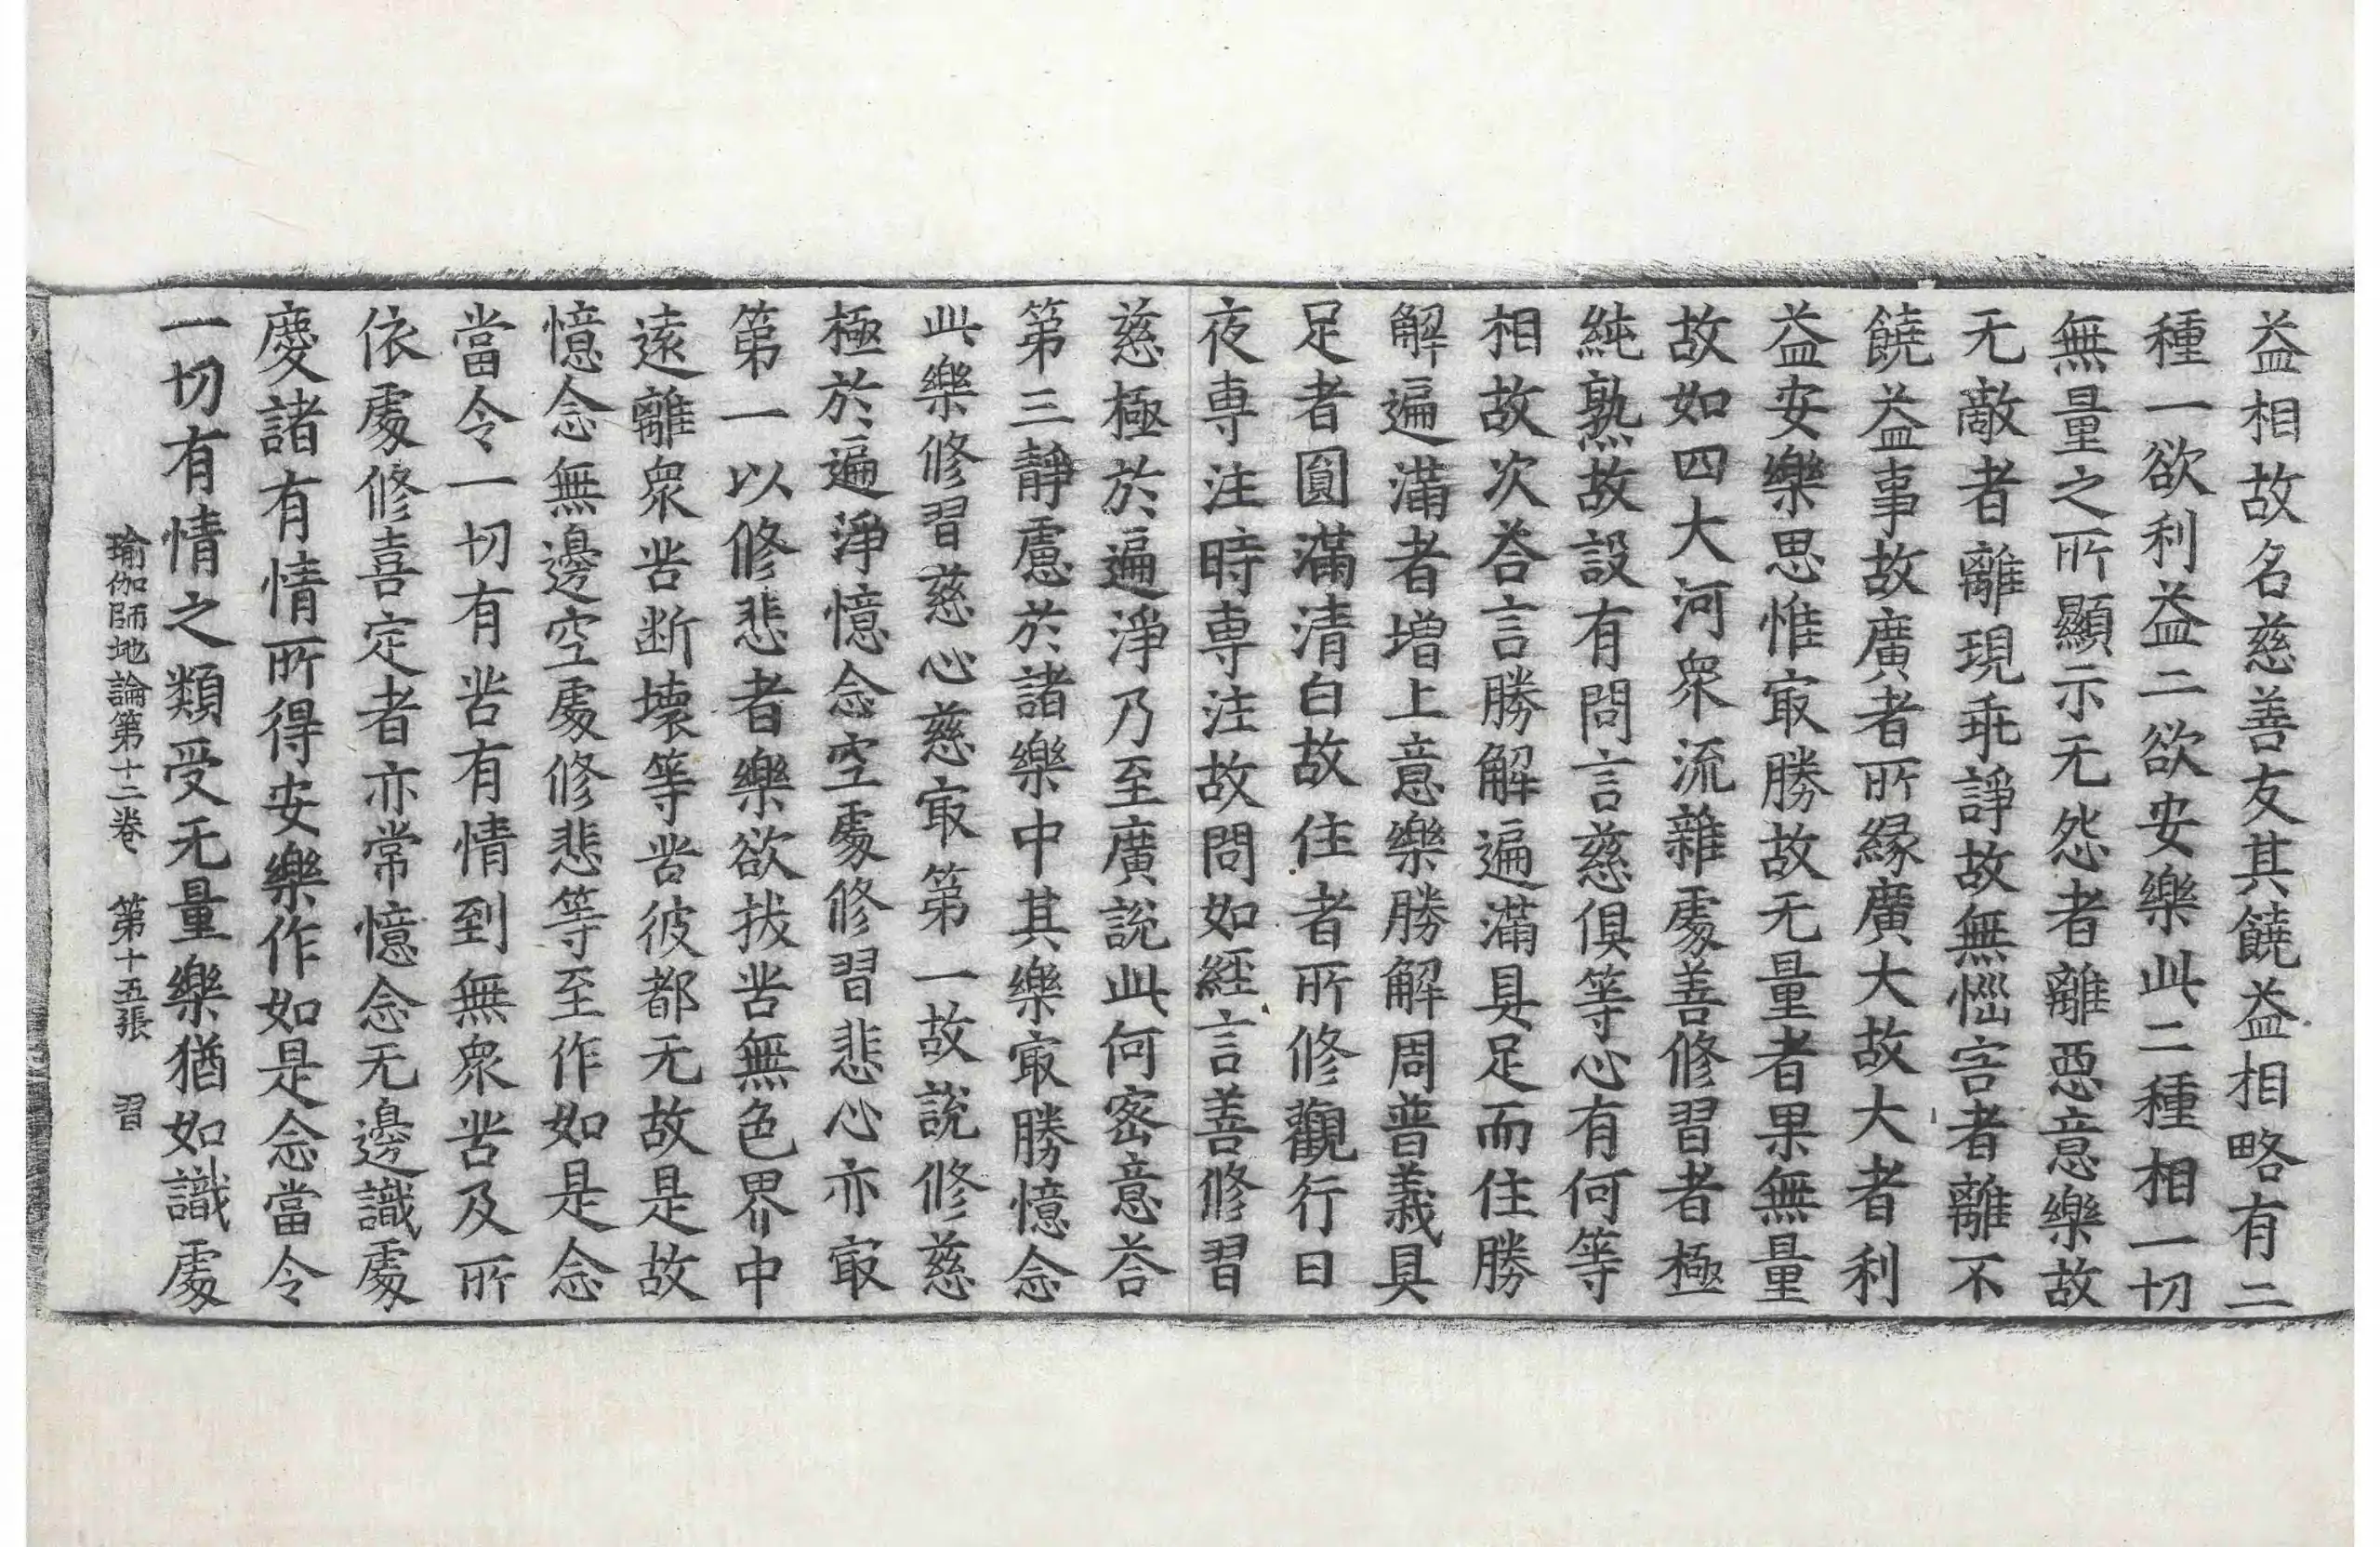 益相故名慈善友其饒益相略有二
種一欲利益二欲安樂此二種相一切
無量之所顯示无怨者離惡意樂故
无敵者離現乖諍故無惱害者離不
饒益事故廣者所緣廣大故大者利
益安樂思惟㝡勝故无量者果無量
故如四大河衆流雜處善修習者極
純熟故設有問言慈俱等心有何等
相故次荅言勝解遍滿具足而住勝
解遍滿者增上意樂勝解周普義具
足者圓滿清白故住者所修觀行日
夜専注時専注故問如經言善修習
慈極於遍淨乃至廣說此何密意荅
第三靜慮於諸樂中其樂㝡勝憶念
此樂修習慈心慈㝡第一故說修慈
極於遍淨憶念空處修習悲心亦㝡
第一以修悲者樂欲拔苦無色界中
遠離衆苦断壞等苦彼都无故是故
憶念無邊空處修悲等至作如是念
當令一切有苦有情到無衆苦及所
依處修喜定者亦常憶念无邊識處
慶諸有情所得安樂作如是念當令
一切有情之類受无量樂猶如識處
瑜伽師地論第十二卷 第十五張 習